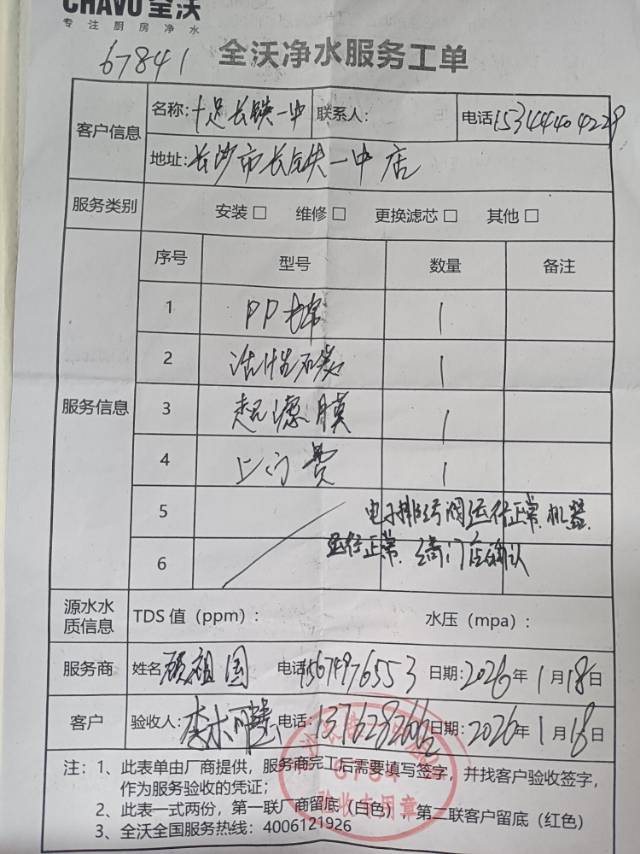 CHAVO 全沃
专注厨房净水
67841
全沃净水服务工单
客户信息
名称：十足长铁一中 联系人： 电话15344404229
地址：长沙市长铁一中店
服务类别 安装□ 维修□ 更换滤芯□ 其他□
服务信息
序号 型号 数量 备注
1 PP棉 1
2 活性炭 1
3 超滤膜 1
4 上门费 1
5 电子排污阀运行正常.机器
6 运行正常.请门店确认
源水水质信息 TDS 值（ppm）： 水压（mpa）：
服务商 姓名 顾祖国 电话 日期：2026年1月18日
客户 验收人： 电话： 日期：2026年1月18日
验收专用章
注：1、此表单由厂商提供，服务商完工后需要填写签字，并找客户验收签字，
作为服务验收的凭证；
2、此表一式两份，第一联厂商留底（白色），第二联客户留底（红色）
3、全沃全国服务热线：4006121926